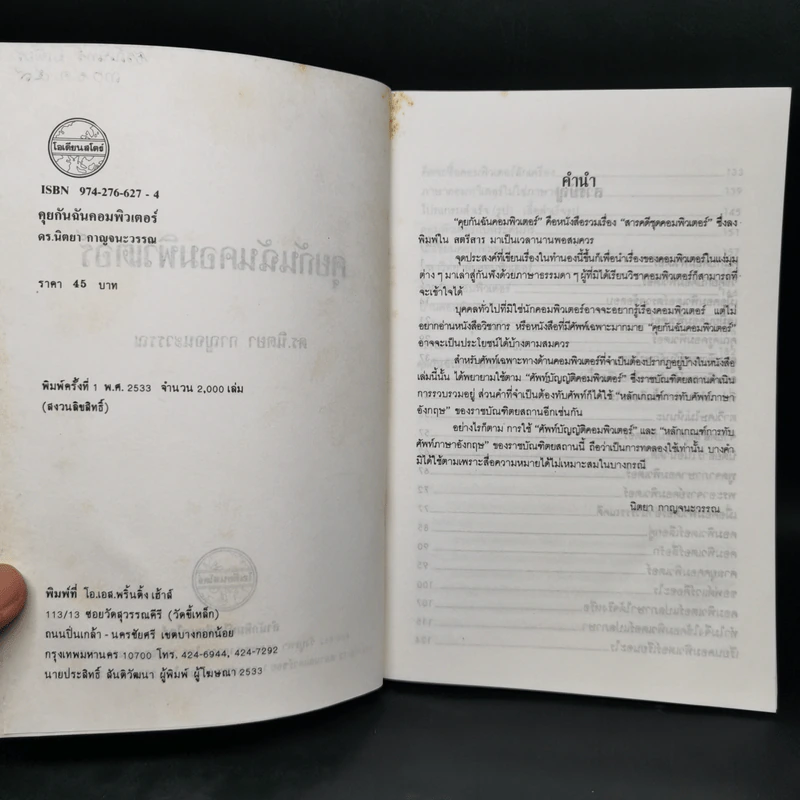 โอเดียนสโตร์
ISBN 974-276-627 - 4
คุยกันฉันคอมพิวเตอร์
ดร.นิตยา กาญจนะวรรณ
ราคา 45 บาท
พิมพ์ครั้งที่ 1 พ.ศ. 2533 จำนวน 2,000 เล่ม
(สงวนลิขสิทธิ์)
พิมพ์ที่ โอ.เอส.พริ้นติ้ง เฮ้าส์
113/13 ซอยวัดสุวรรณคีรี (วัดขี้เหล็ก)
ถนนปิ่นเกล้า - นครชัยศรี เขตบางกอกน้อย
กรุงเทพมหานคร 10700 โทร. 424-6944, 424-7292
นายประสิทธิ์ สันติวัฒนา ผู้พิมพ์ ผู้โฆษณา 2533
คำนำ
“คุยกันฉันคอมพิวเตอร์” คือหนังสือรวมเรื่อง “สารคดีชุดคอมพิวเตอร์” ซึ่งลง
พิมพ์ใน สตรีสาร มาเป็นเวลานานพอสมควร
จุดประสงค์ที่เขียนเรื่องในทำนองนี้ขึ้นก็เพื่อนำเรื่องของคอมพิวเตอร์ในแง่มุม
ต่าง ๆ มาเล่าสู่กันฟังด้วยภาษาธรรมดา ๆ ผู้ที่มิได้เรียนวิชาคอมพิวเตอร์ก็สามารถที่
จะเข้าใจได้
บุคคลทั่วไปที่มิใช่นักคอมพิวเตอร์อาจจะอยากรู้เรื่องคอมพิวเตอร์ แต่ไม่
อยากอ่านหนังสือวิชาการ หรือหนังสือที่มีศัพท์เฉพาะมากมาย “คุยกันฉันคอมพิวเตอร์”
อาจจะเป็นประโยชน์ได้บ้างตามสมควร
สำหรับศัพท์เฉพาะทางด้านคอมพิวเตอร์ที่จำเป็นต้องปรากฏอยู่บ้างในหนังสือ
เล่มนี้นั้น ได้พยายามใช้ตาม “ศัพท์บัญญัติคอมพิวเตอร์” ซึ่งราชบัณฑิตยสถานดำเนิน
การรวบรวมอยู่ ส่วนคำที่จำเป็นต้องทับศัพท์ก็ได้ใช้ “หลักเกณฑ์การทับศัพท์ภาษา
อังกฤษ” ของราชบัณฑิตยสถานอีกเช่นกัน
อย่างไรก็ตาม การใช้ “ศัพท์บัญญัติคอมพิวเตอร์” และ “หลักเกณฑ์การทับ
ศัพท์ภาษาอังกฤษ” ของราชบัณฑิตยสถานนี้ ถือว่าเป็นการทดลองใช้เท่านั้น บางคำ
มิได้ใช้ตามเพราะสื่อความหมายได้ไม่เหมาะสมในบางกรณี
นิตยา กาญจนะวรรณ